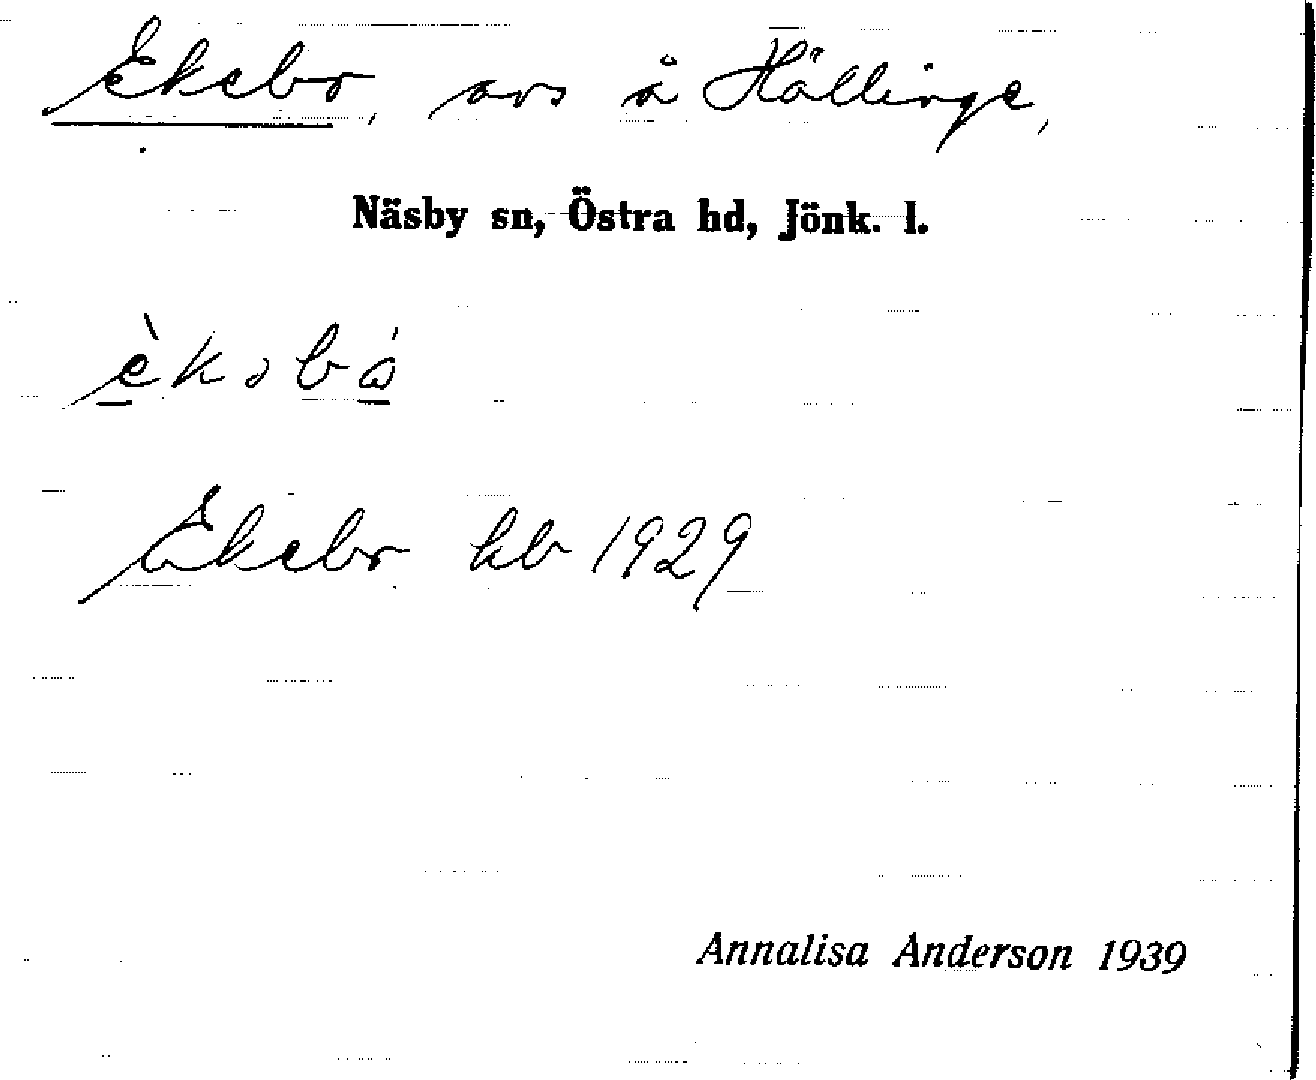 Ekebo, avs å Hällinge,
Näsby sn, Östra hd, Jönk. l.
Ekebo kb 1929
Annalisa Anderson 1939